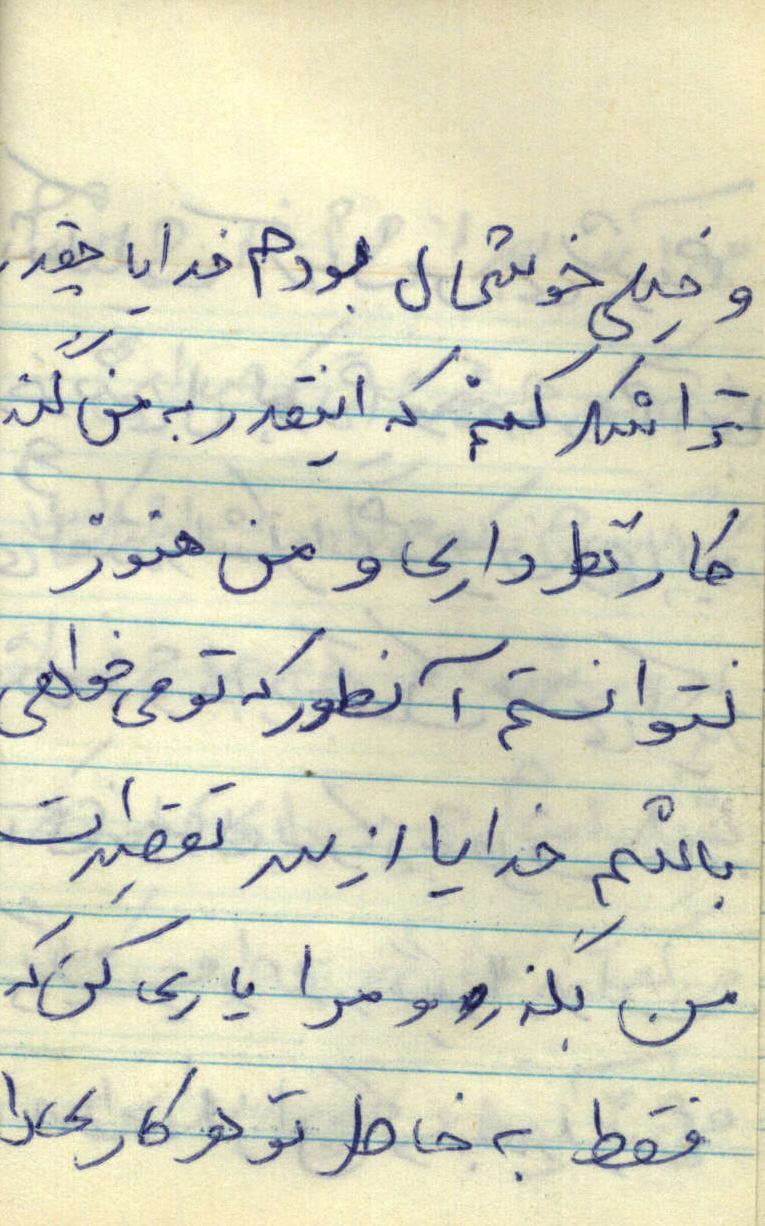 و خیلی خوشحال بودم خدایا چقدر
ترا شکر کنم که اینقدر به من گنه
کار نظر داری و من هنوز
نتوانستم آنطور که تو می خواهی
باشم خدایا از سر تقصیرات
من بگذر و مرا یاری کن که
فقط به خاطر تو هر کاری را